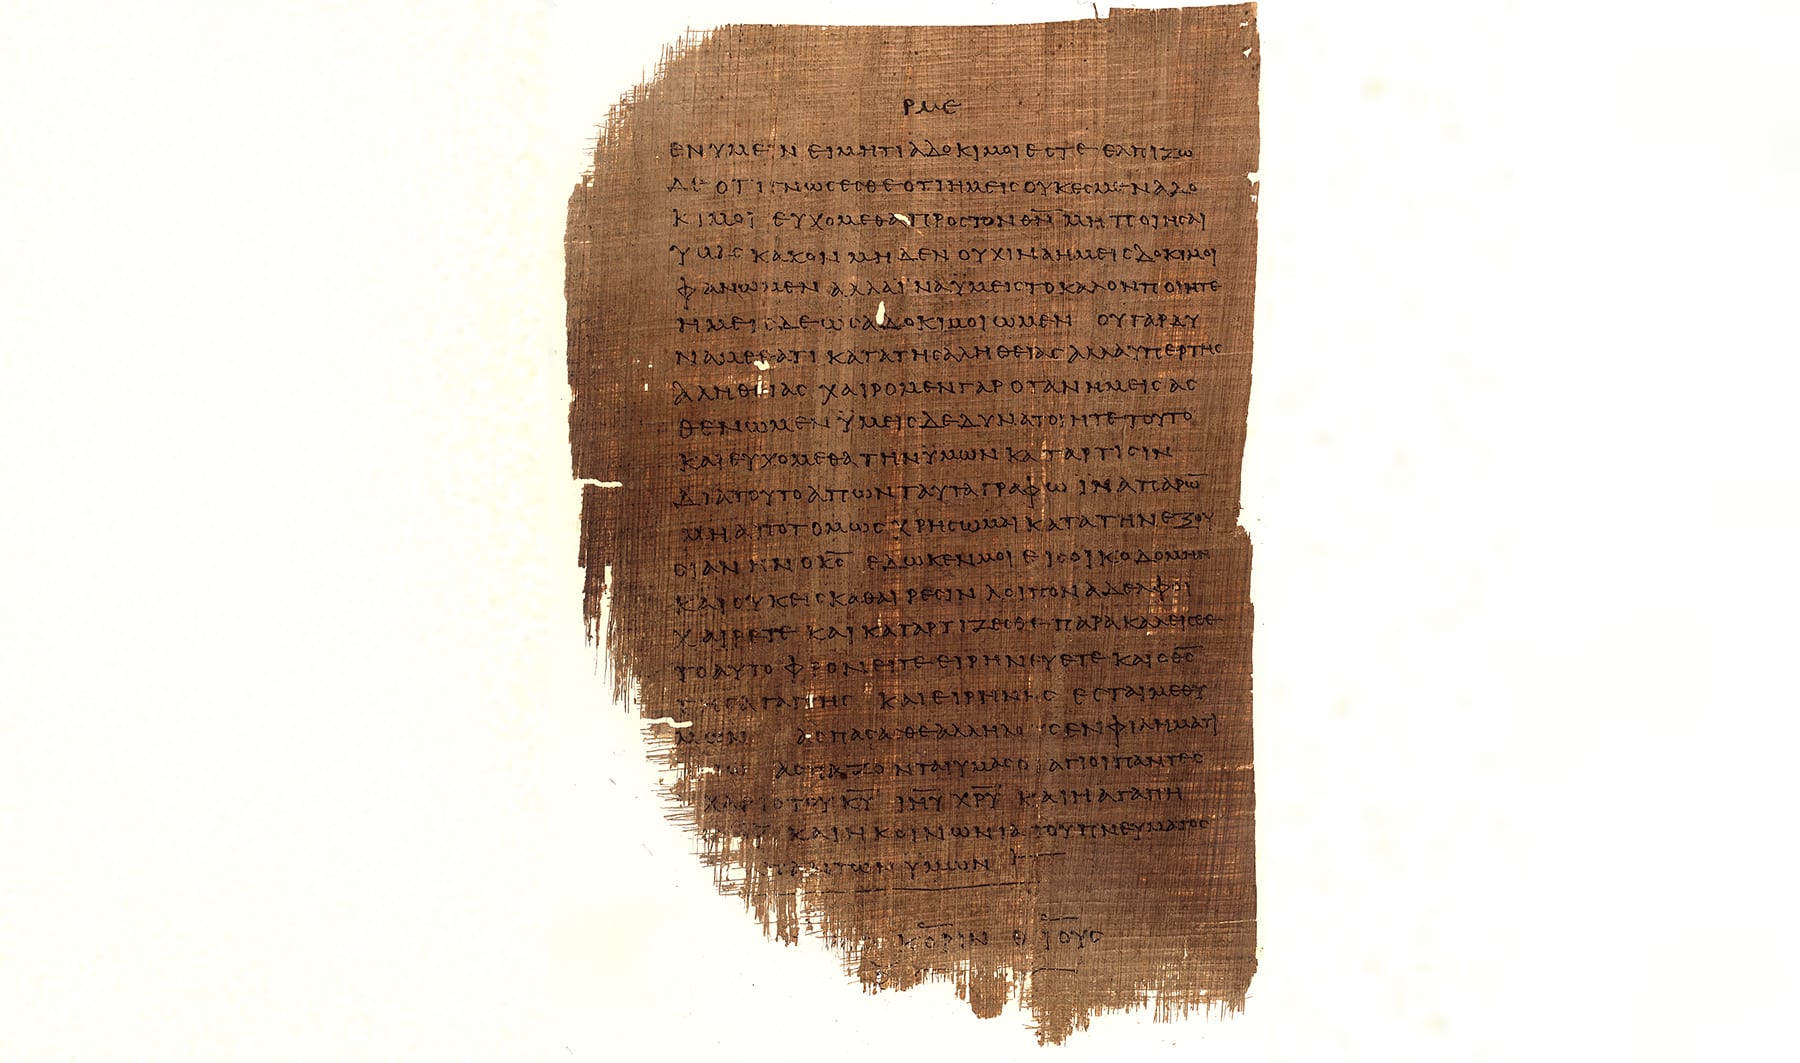 ΡΜΕ
ΕΝ ΥΜΕΙΝ ΕΙ ΜΗΤΙ ΑΔΟΚΙΜΟΙ ΕΣΤΕ ΕΛΠΙΖΩ
ΔΕ ΟΤΙ ΓΝΩΣΕΣΘΕ ΟΤΙ ΗΜΕΙΣ ΟΥΚ ΕΣΜΕΝ ΑΔΟ
ΚΙΜΟΙ ΕΥΧΟΜΕΘΑ ΠΡΟΣ ΤΟΝ Θ̅Ν̅ ΜΗ ΠΟΙΗΣΑΙ
ΥΜΑΣ ΚΑΚΟΝ ΜΗΔΕΝ ΟΥΧ ΙΝΑ ΗΜΕΙΣ ΔΟΚΙΜΟΙ
ΦΑΝΩΜΕΝ ΑΛΛ ΙΝΑ ΥΜΕΙΣ ΤΟ ΚΑΛΟΝ ΠΟΙΗΤΕ
ΗΜΕΙΣ ΔΕ ΩΣ ΑΔΟΚΙΜΟΙ ΩΜΕΝ ΟΥ ΓΑΡ ΔΥ
ΝΑΜΕΘΑ ΤΙ ΚΑΤΑ ΤΗΣ ΑΛΗΘΕΙΑΣ ΑΛΛΑ ΥΠΕΡ ΤΗΣ
ΑΛΗΘΕΙΑΣ ΧΑΙΡΟΜΕΝ ΓΑΡ ΟΤΑΝ ΗΜΕΙΣ ΑΣ
ΘΕΝΩΜΕΝ ΥΜΕΙΣ ΔΕ ΔΥΝΑΤΟΙ ΗΤΕ ΤΟΥΤΟ
ΚΑΙ ΕΥΧΟΜΕΘΑ ΤΗΝ ΥΜΩΝ ΚΑΤΑΡΤΙΣΙΝ
ΔΙΑ ΤΟΥΤΟ ΑΠΩΝ ΤΑΥΤΑ ΓΡΑΦΩ ΙΝΑ ΠΑΡΩ̅
ΜΗ ΑΠΟΤΟΜΩΣ ΧΡΗΣΩΜΑΙ ΚΑΤΑ ΤΗΝ ΕΞΟΥ
ΣΙΑΝ ΗΝ Ο Κ̅Σ̅ ΕΔΩΚΕΝ ΜΟΙ ΕΙΣ ΟΙΚΟΔΟΜΗΝ
ΚΑΙ ΟΥΚ ΕΙΣ ΚΑΘΑΙΡΕΣΙΝ ΛΟΙΠΟΝ ΑΔΕΛΦΟΙ
ΧΑΙΡΕΤΕ ΚΑΙ ΚΑΤΑΡΤΙΖΕΣΘΕ ΠΑΡΑΚΑΛΕΙΣΘΕ
ΤΟ ΑΥΤΟ ΦΡΟΝΕΙΤΕ ΕΙΡΗΝΕΥΕΤΕ ΚΑΙ Ο Θ̅Σ̅
ΤΗΣ ΑΓΑΠΗΣ ΚΑΙ ΕΙΡΗΝΗΣ ΕΣΤΑΙ ΜΕΘ Υ
ΜΩΝ ΑΣΠΑΣΑΣΘΕ ΑΛΛΗΛΟΥΣ ΕΝ ΦΙΛΗΜΑΤΙ
ΑΣΠΑΖΟΝΤΑΙ ΥΜΑΣ ΟΙ ΑΓΙΟΙ ΠΑΝΤΕΣ
ΧΑΡΙΣ ΤΟΥ Κ̅Υ̅ Ι̅Η̅Υ̅ Χ̅Ρ̅Υ̅ ΚΑΙ Η ΑΓΑΠΗ
ΚΑΙ Η ΚΟΙΝΩΝΙΑ ΤΟΥ ΠΝΕΥΜΑΤΟΣ
ΠΑΝΤΩΝ ΥΜΩΝ
ΚΟΡΙΝΘΙΟΥΣ